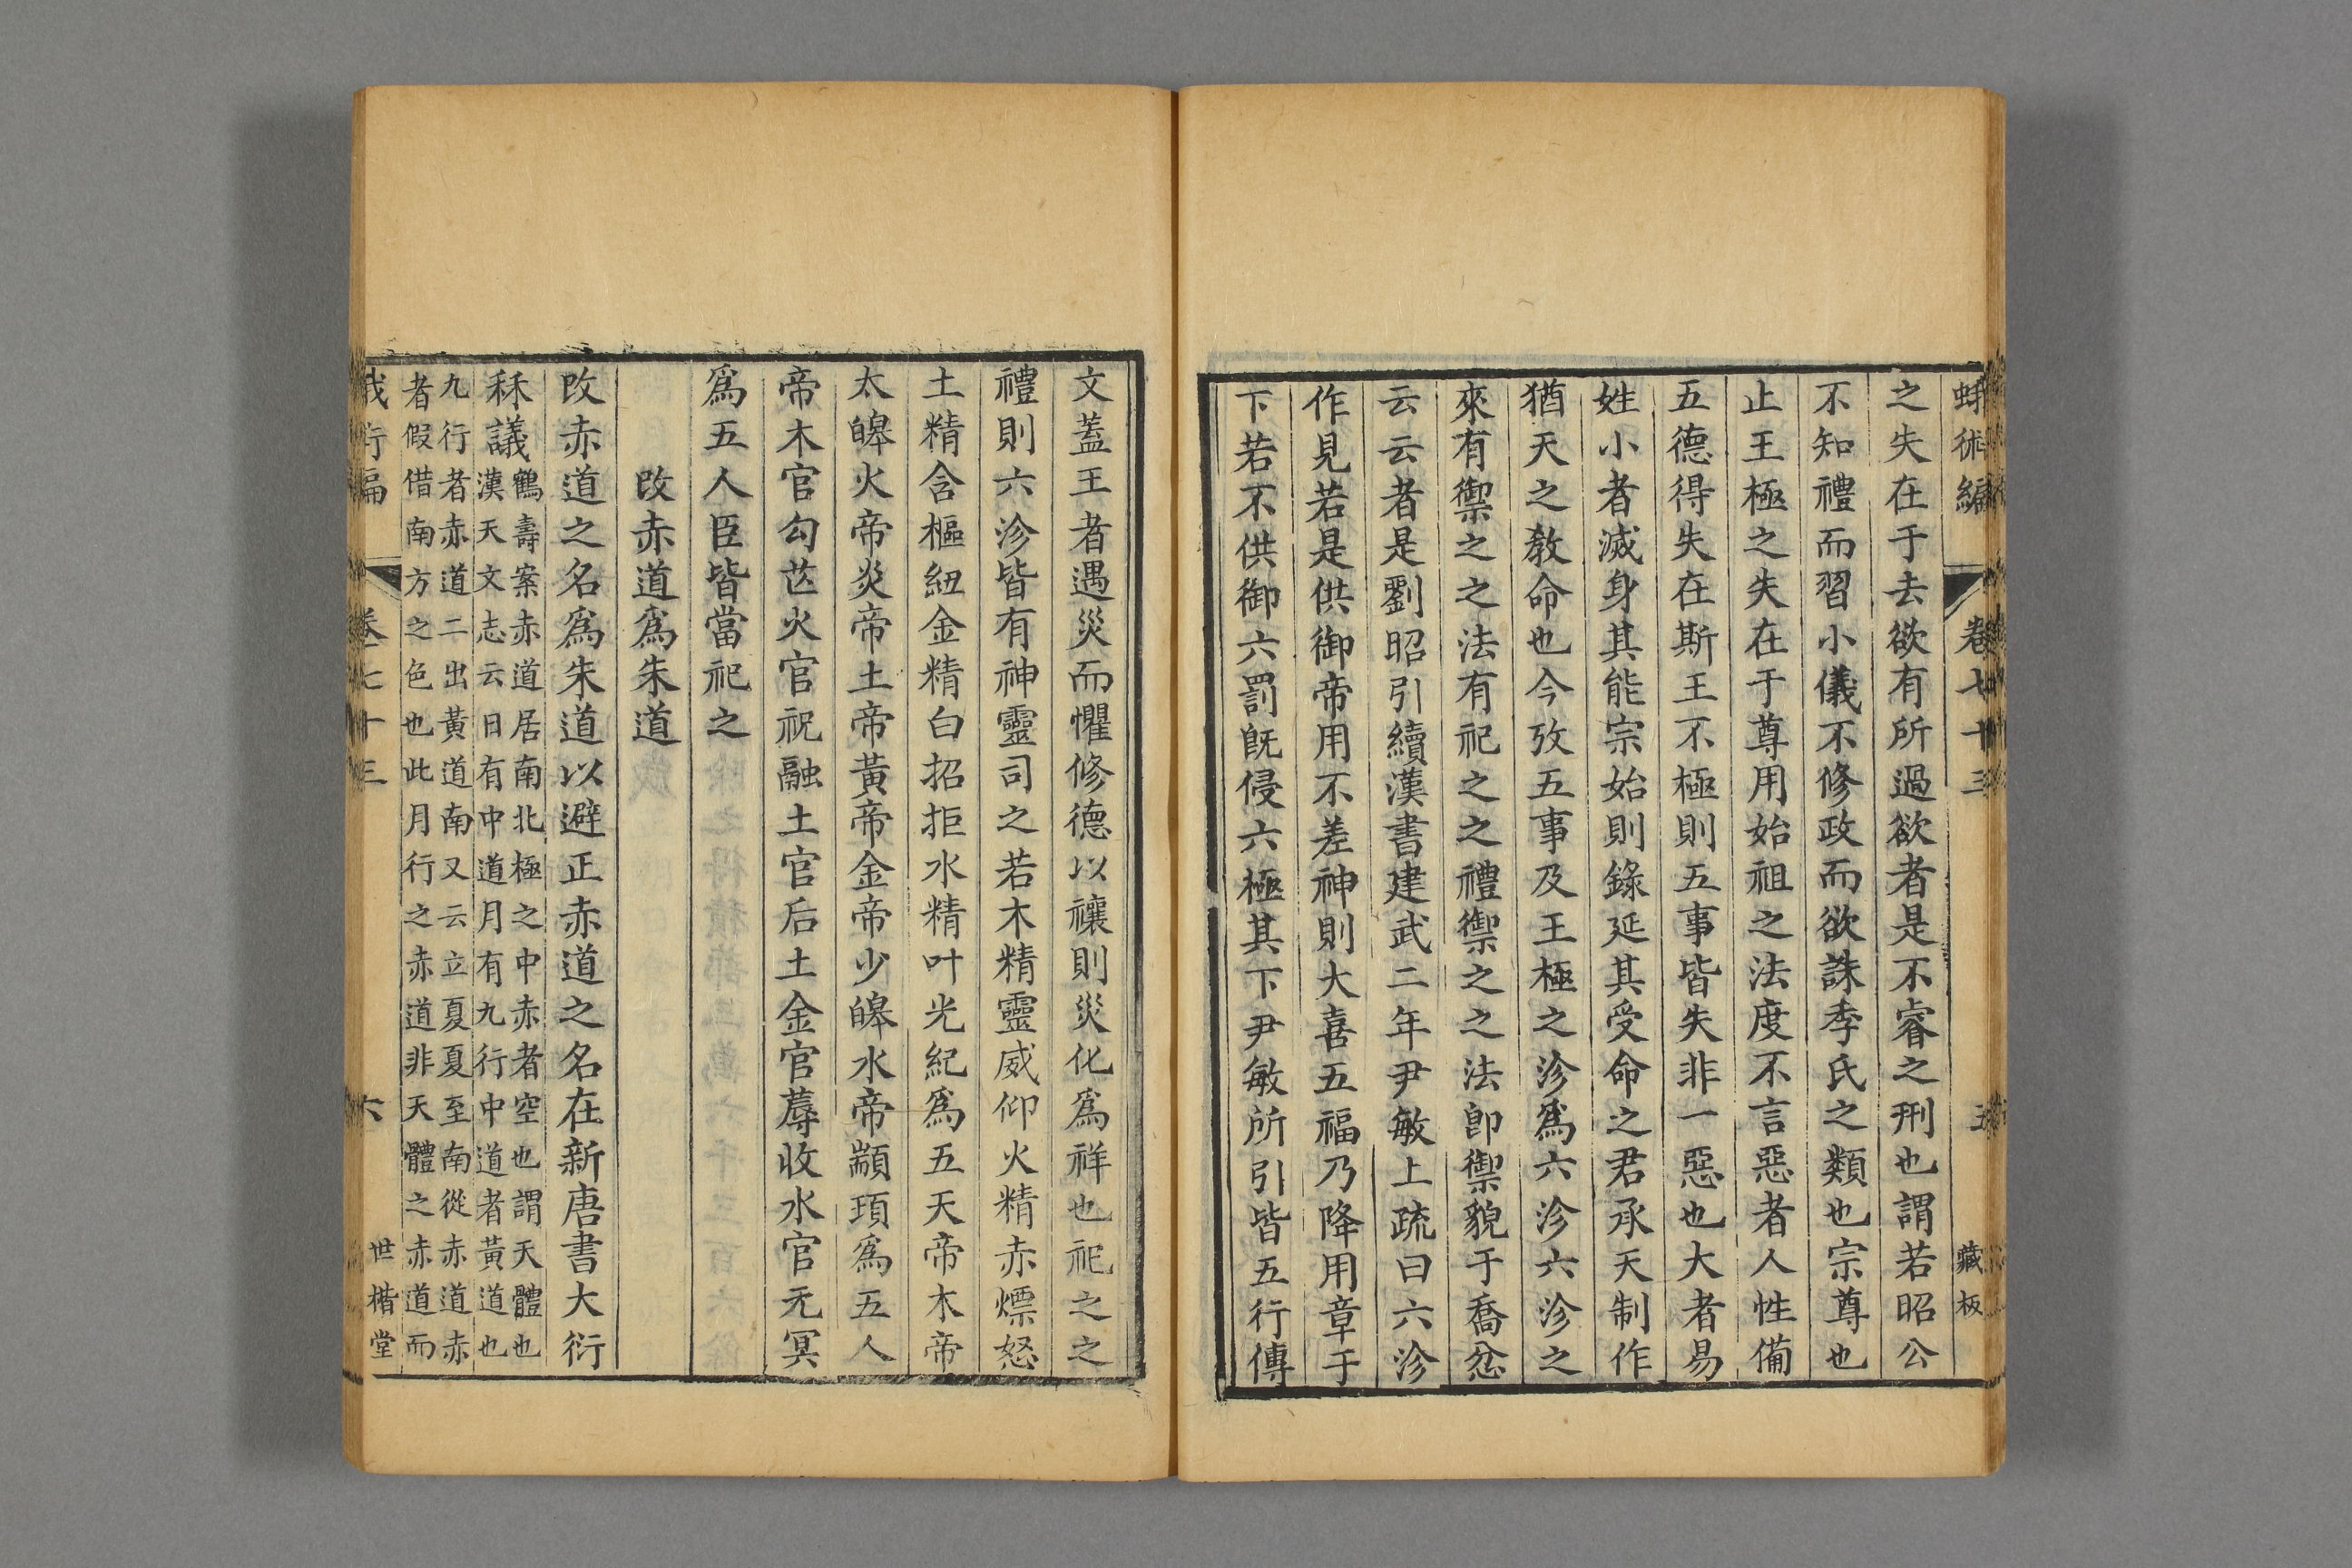 蛾術編 卷七十三 五 藏板
之失在于去欲有所過欲者是不睿之刑也謂若昭公
不知禮而習小儀不修政而欲誅季氏之類也宗尊也
止王極之失在于尊用始祖之法度不言惡者人性備
五德得失在斯王不極則五事皆失非一惡也大者易
姓小者滅身其能宗始則錄延其受命之君承天制作
猶天之敎命也今攷五事及王極之沴爲六沴六沴之
來有禦之之法有祀之之禮禦之之法卽禦貌于喬忿
云云者是劉昭引續漢書建武二年尹敏上疏曰六沴
作見若是供御帝用不差神則大喜五福乃降用章于
下若不供御六罰旣侵六極其下尹敏所引皆五行傳
文蓋王者遇災而懼修德以禳則災化爲祥也祀之之
禮則六沴皆有神靈司之若木精靈威仰火精赤熛怒
土精含樞紐金精白招拒水精叶光紀爲五天帝木帝
太皞火帝炎帝土帝黃帝金帝少皞水帝顓頊爲五人
帝木官勾芒火官祝融土官后土金官蓐收水官元冥
爲五人臣皆當祀之
改赤道爲朱道
改赤道之名爲朱道以避正赤道之名在新唐書大衍
秝議
鶴壽案赤道居南北極之中赤者空也謂天體也
漢天文志云日有中道月有九行中道者黃道也
九行者赤道二出黃道南又云立夏夏至南從赤道赤
者假借南方之色也此月行之赤道非天體之赤道而
蛾術編 卷七十三 六 世楷堂